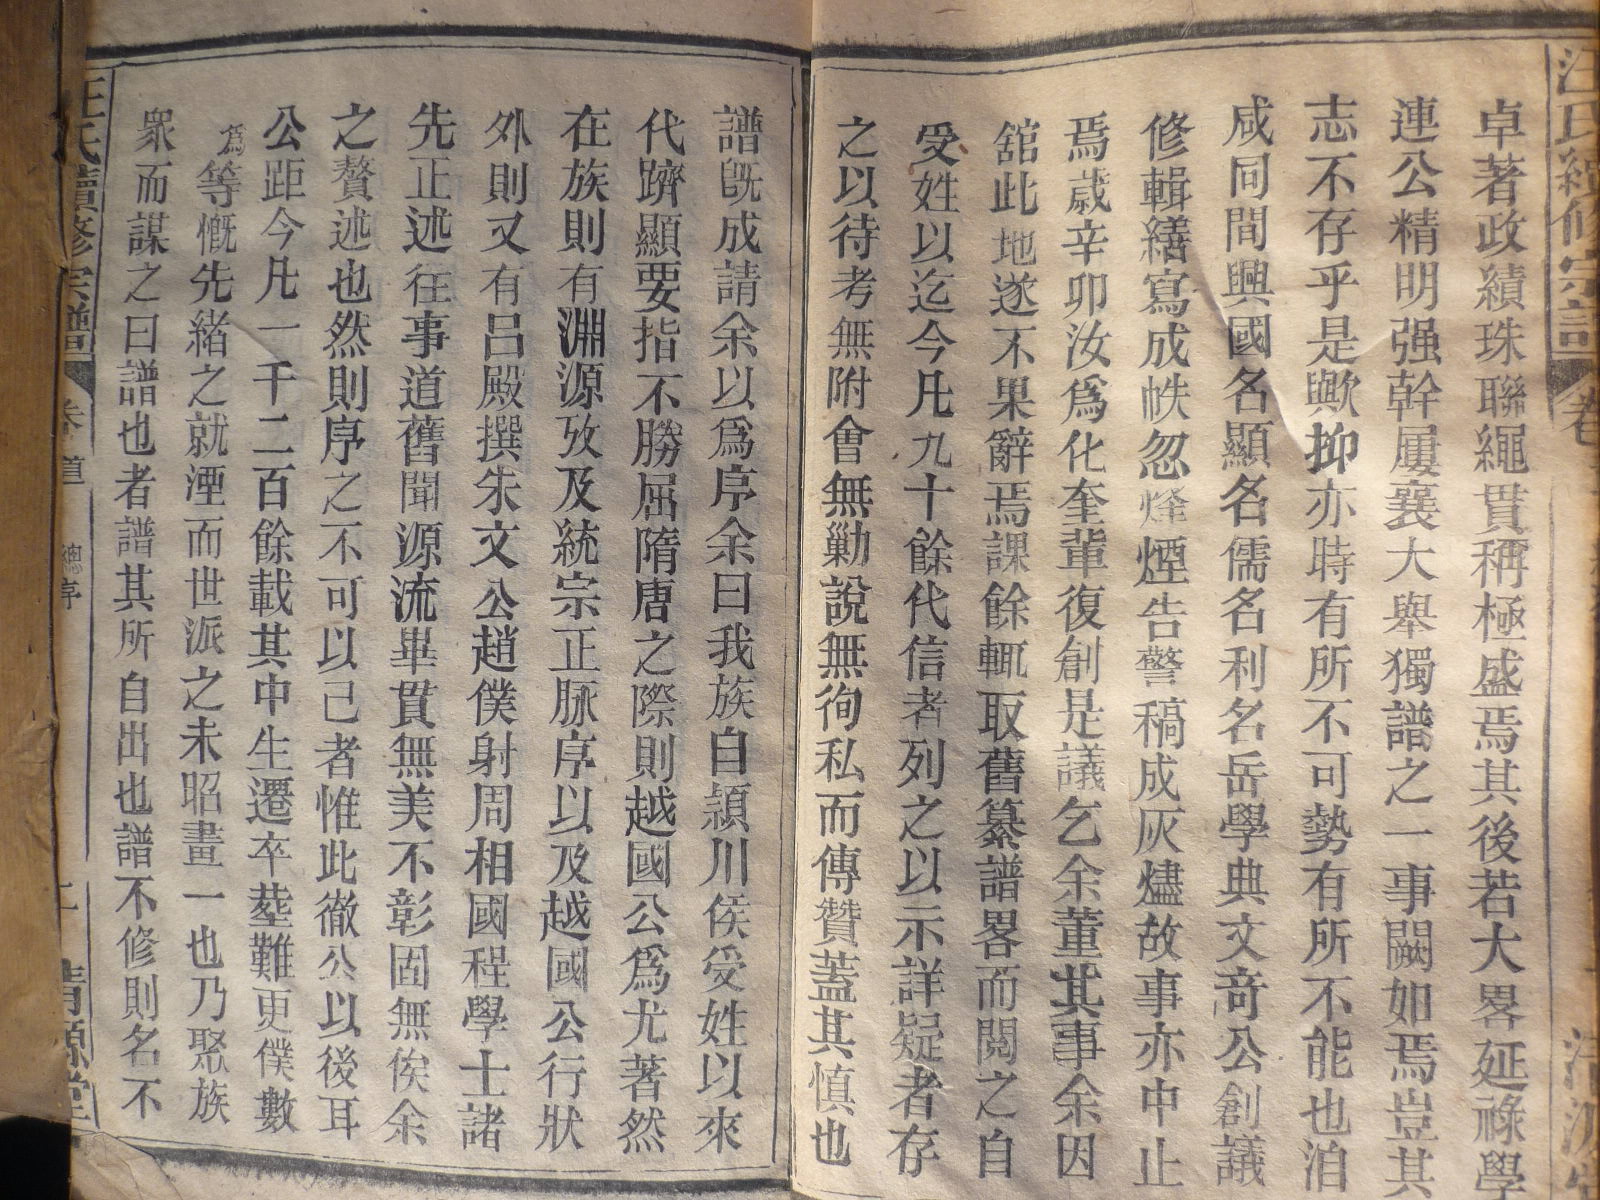 汪氏續修宗譜
卷
卓著政績珠聯繩貫稱極盛焉其後若大畧延祿學
連公精明强幹屢襄大舉獨譜之一事闕如焉豈其
志不存乎是歟抑亦時有所不可勢有所不能也洎
咸同間興國名顯名儒名利名岳學典文奇公創議
修輯繕寫成帙忽烽煙告警稿成灰燼故事亦中止
焉歲辛卯汝爲化奎輩復創是議乞余董其事余因
舘此地遂不果辭焉課餘輒取舊纂譜畧而閱之自
受姓以迄今凡九十餘代信者列之以示詳疑者存
之以待考無附會無勦說無徇私而傳贊蓋其慎也
譜旣成請余以爲序余曰我族自潁川侯受姓以來
代躋顯要指不勝屈隋唐之際則越國公爲尤著然
在族則有淵源攷及統宗正脉序以及越國公行狀
外則又有呂殿撰朱文公趙僕射周相國程學士諸
先正述往事道舊聞源流畢貫無美不彰固無俟余
之贅述也然則序之不可以已者惟此徹公以後耳
公距今凡一千二百餘載其中生遷卒塟難更僕數
爲等慨先緒之就湮而世派之未昭畫一也乃聚族
衆而謀之曰譜也者譜其所自出也譜不修則名不
汪氏續修宗譜
卷首
總序
清源堂